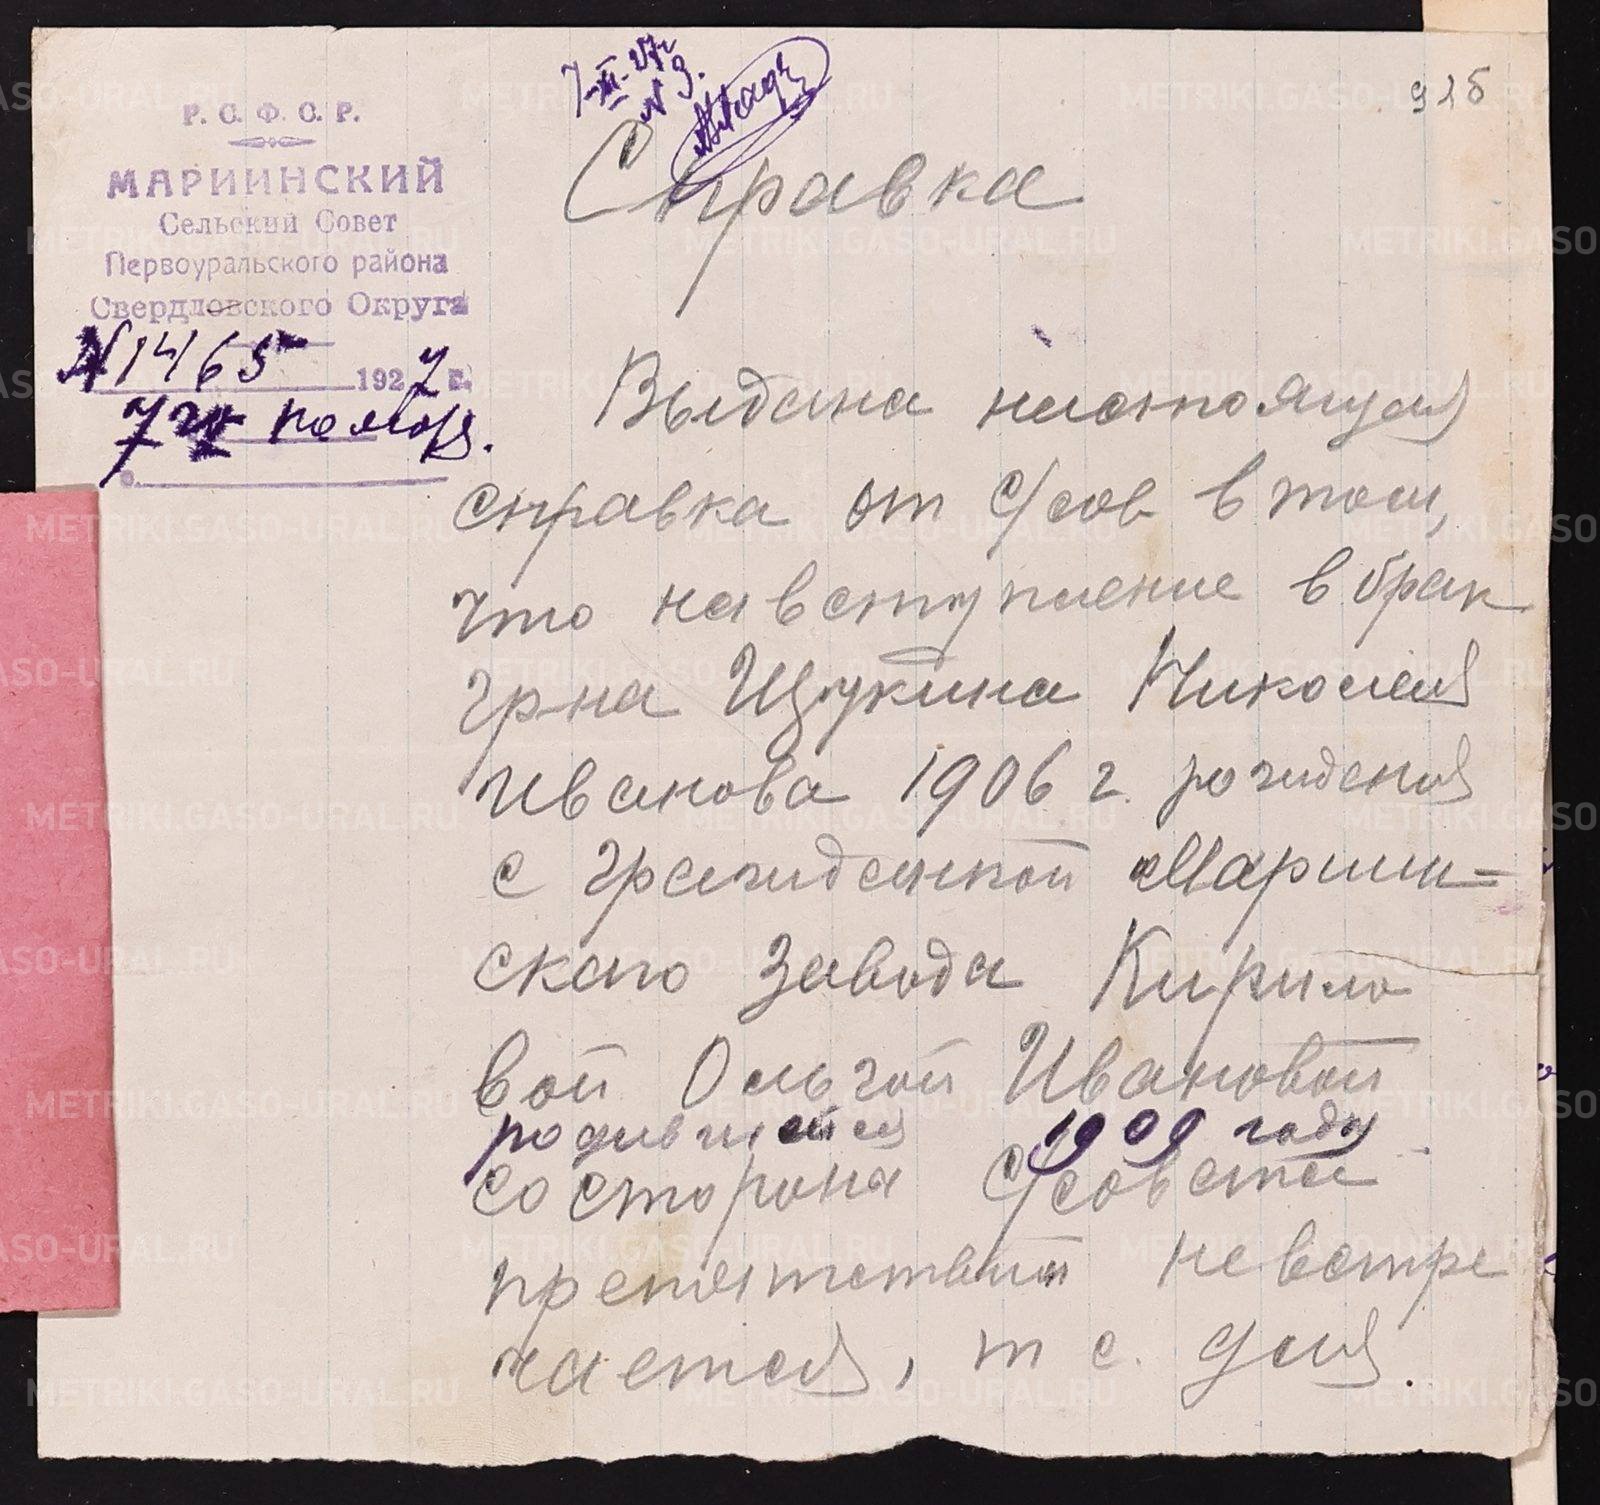 7-XI-27 г
№ 3.
925
Р. С. Ф. С. Р.
МАРИИНСКИЙ
Сельский Совет
Первоуральского района
Свердловского Округа
№ 1465 1927 г.
7 го ноября.
Справка
Выдана настоящая
справка от С/сов в том,
что на вступление в брак
гр-на Щукина Николая
Иванова 1906 г. рождения
с гражданкой Мариин-
скаго Завода Кирило
вой Ольгой Ивановой
родившейся 1909 году
со стороны С/совета
препятствий не встре
чается, т с. для.